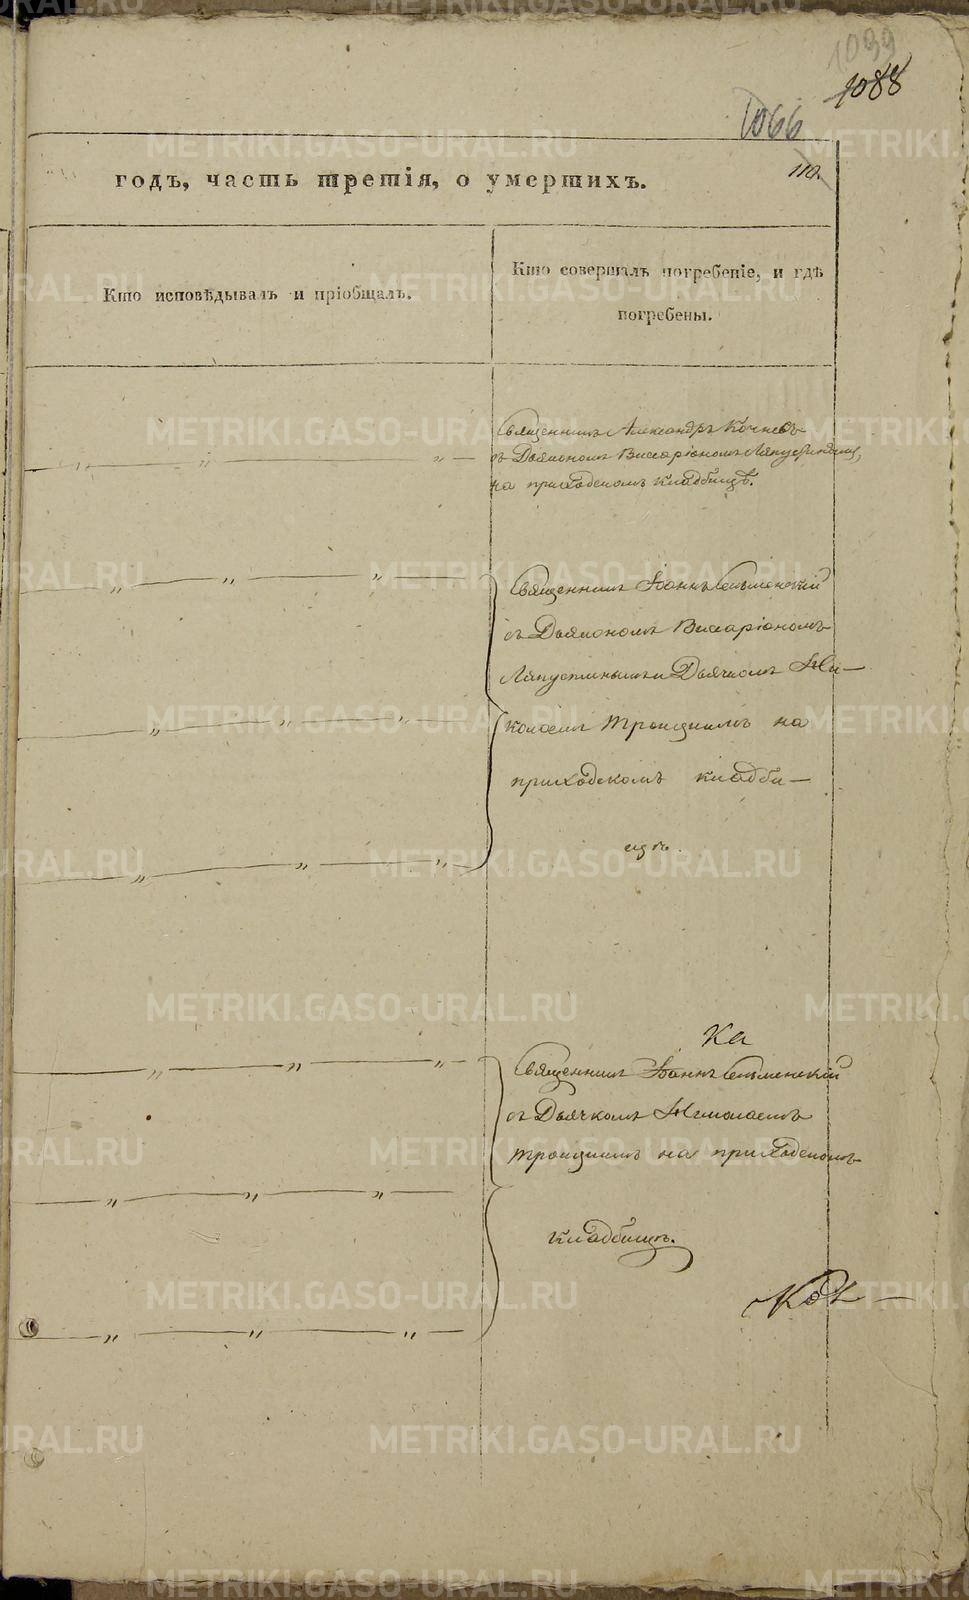 1099
1088
1066
110.
годъ, часть третія, о умершихъ.
Кто исповѣдывалъ и пріобщалъ.
Кто совершалъ погребеніе, и гдѣ
погребены.
Священникъ Александръ Кочневъ
съ Дьякономъ Висаріономъ Ляпустинымъ,
на приходскомъ кладбищѣ.
Священникъ Іоаннъ
съ Дьякономъ Висаріономъ
Ляпустинымъ и Дьячкомъ Ни—
колаемъ Троицкимъ на
приходскомъ кладби—
щѣ.
Ка
Священникъ Іоаннъ
съ Дьячкомъ Николаемъ
Троицкимъ на приходскомъ
кладбищѣ.
METRIKI.GASO-URAL.RU